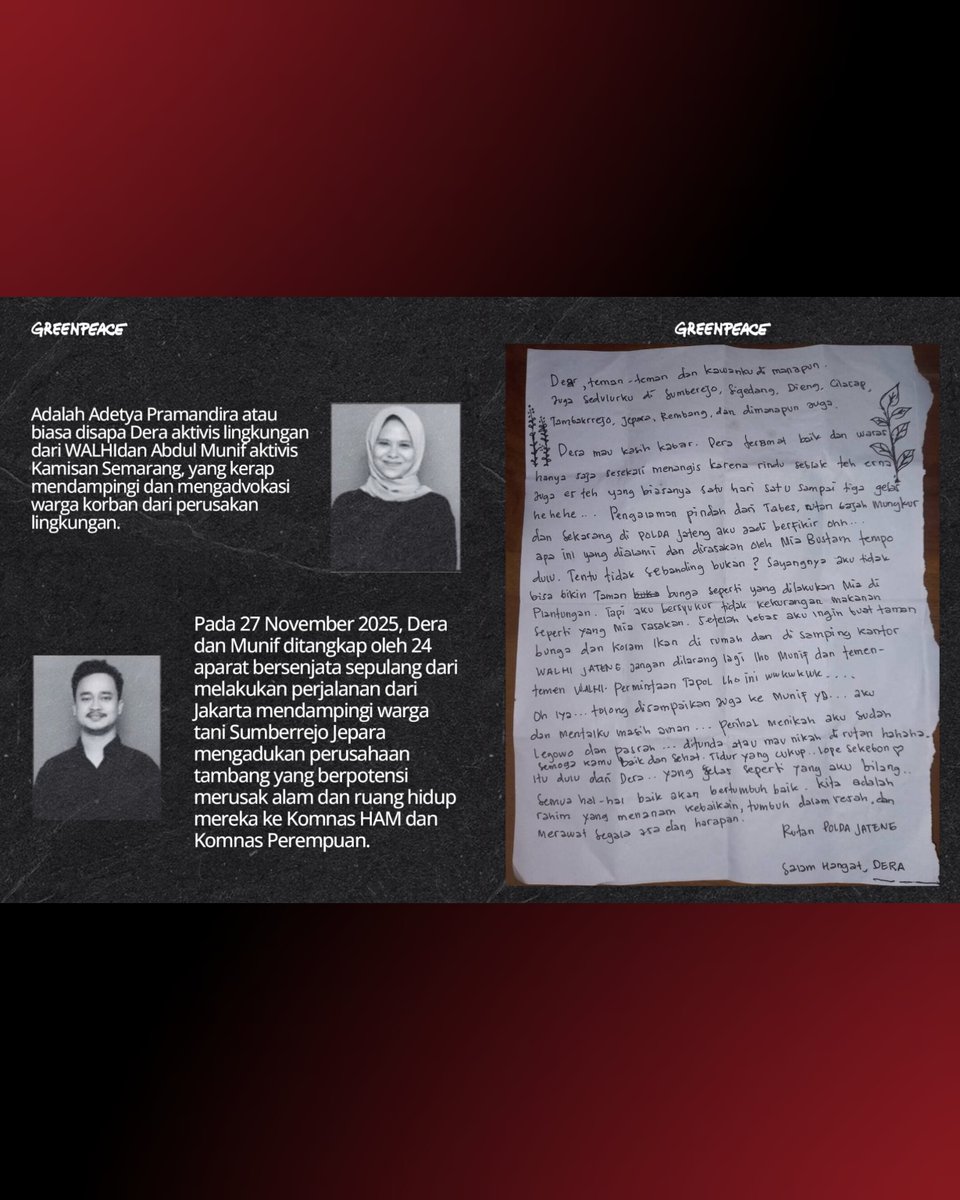 GREENPEACE
Adalah Adetya Pramandira atau
biasa disapa Dera aktivis lingkungan
dari WALHIdan Abdul Munif aktivis
Kamisan Semarang, yang kerap
mendampingi dan mengadvokasi
warga korban dari perusakan
lingkungan.
Pada 27 November 2025, Dera
dan Munif ditangkap oleh 24
aparat bersenjata sepulang dari
melakukan perjalanan dari
Jakarta mendampingi warga
tani Sumberrejo Jepara
mengadukan perusahaan
tambang yang berpotensi
merusak alam dan ruang hidup
mereka ke Komnas HAM dan
Komnas Perempuan.
GREENPEACE
Dear, teman-teman dan kawanku di manapun.
Juga Sedulurku di Sumberejo, Sigedang, Dieng, Cilacap,
Tambakrrejo, Jepara, Rembang, dan dimanapun juga.
Dera mau kasih kabar. Dera teramat baik dan waras
hanya saja sesekali menangis karena rindu seblak teh erna
juga es teh yang biasanya satu hari satu sampai tiga gelas
hehehe... Pengalaman pindah dari Tabes, rutan Gajah Mungkur
dan Sekarang di POLDA Jateng aku jadi berfikir ohh...
apa ini yang dialami dan dirasakan oleh Mia Bustam tempo
dulu. Tentu tidak sebanding bukan? Sayangnya aku tidak
bisa bikin Taman bunga seperti yang dilakukan Mia di
Plantungan. Tapi aku bersyukur tidak kekurangan makanan
seperti yang Mia rasakan. Setelah bebas aku ingin buat taman
bunga dan kolam Ikan di rumah dan di samping kantor
WALHI JATENG jangan dilarang lagi lho Munif dan temen-
temen WALHI. Permintaan Tapol lho ini wkwkwkwk....
Oh Iya... tolong disampaikan juga ke Munif yD... aku
dan Mentalku masih aman... perihal menikah aku sudah
Legowo dan pasrah... ditunda atau mau nikah di rutan hahaha.
Semoga kamu baik dan sehat. Tidur yang cukup.. lope sekebon
Itu dulu dari Dera.. yang jelas seperti yang aku bilang..
Semua hal-hal baik akan bertumbuh baik. Kita adalah
rahim yang menanam kebaikan, tumbuh dalam resah, dan
merawat segala asa dan harapan.
Rutan POLDA JATENG
Salam Hangat, DERA